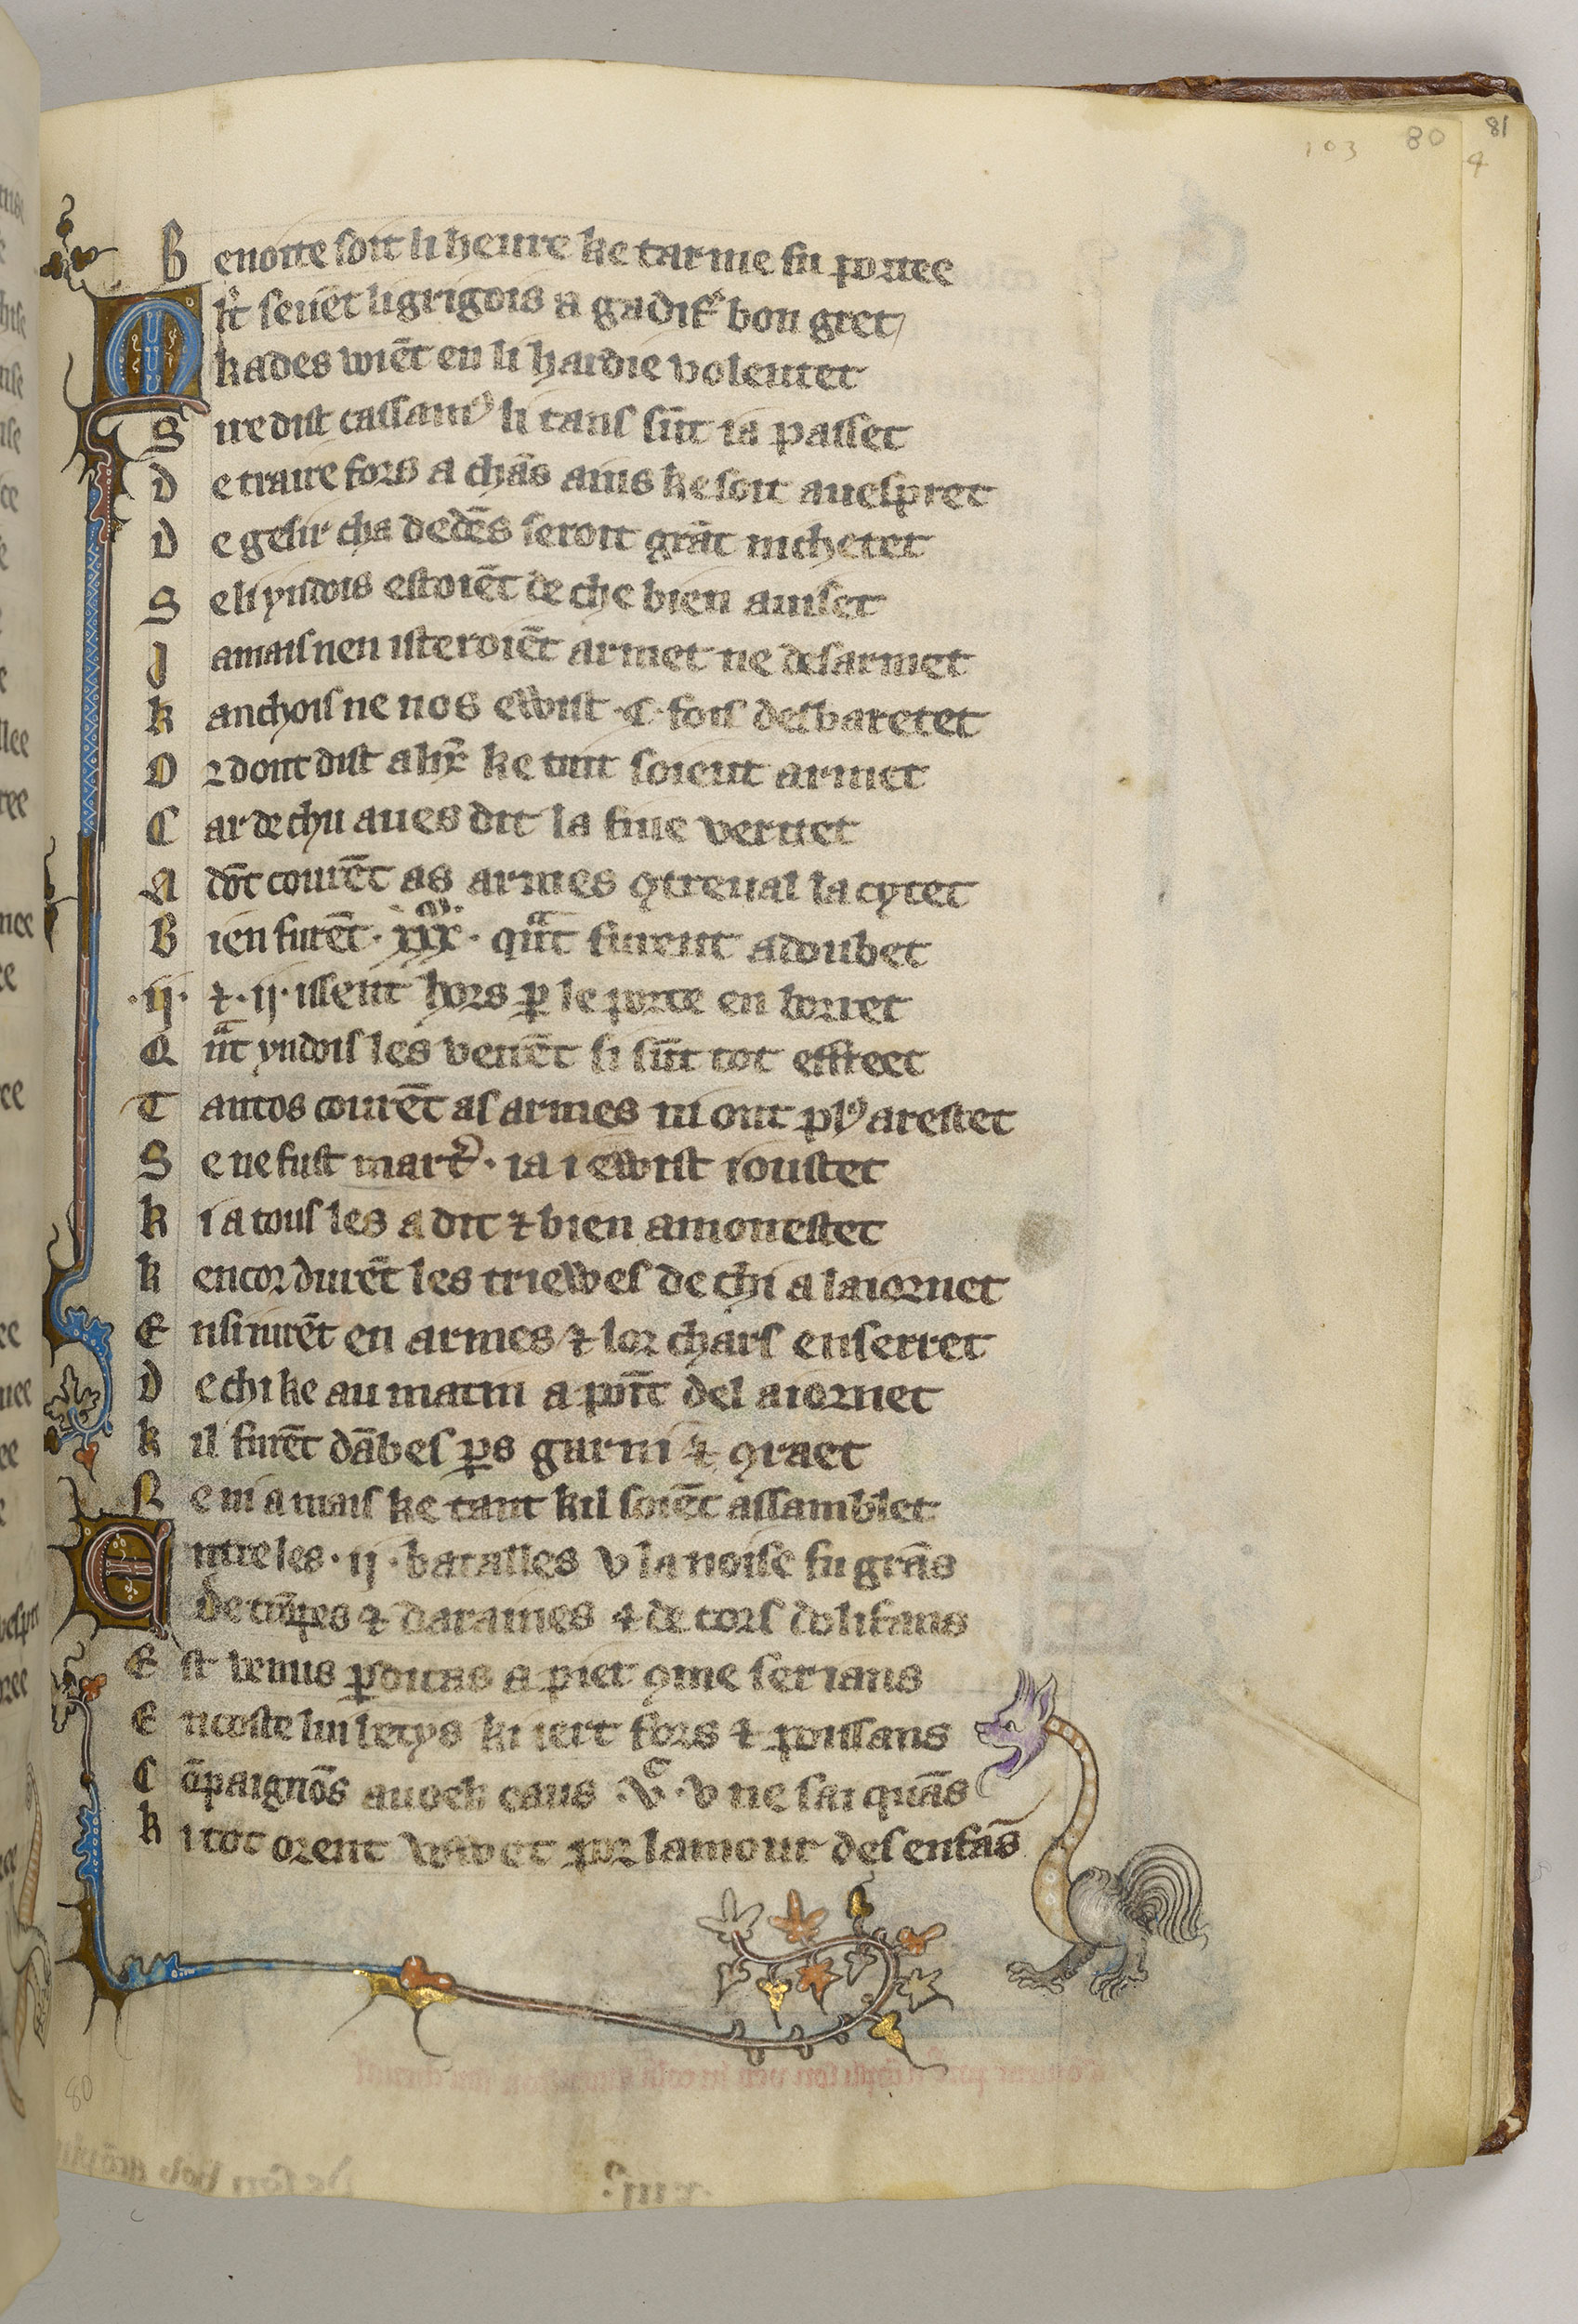 103 80 81
4
Benoite soit li heure ke tarme fu portee
Mlt̄ sevēt li grigois a gadif' bon gret
kades wiēt en li hardie volentet
Sire dist cassamꝰ li tans sūt ia passet
De traire fors a chās ains ke soit avespret
De gesir cha dedēs seroit grāt nichetet
Se li yndois estoiēt de che bien aviset
Jamais nen isteroiēt armet ne desarmet
Kanchois ne nos ewist ·C· fois desbaretet
Or dont dist alix̄ ke tuit soient armet
Car de chu aves dit la fine vertet
Adōt courēt as armes ꝯtreval la cytet
Bien furēt · xxxͫ · qͣt furent adoubet
·ij· ⁊ ·ij· issent hors ꝑ le porte en borret
Qͣnt yndois les veirēt si sūt tot effreet
Tantos courēt as armes ni ont plꝰ arestet
Se ne fust marc̄ꝰ · ia i ewist ioustet
Ki a tous les a dit ⁊ bien amonestet
Kencor durēt les triewes de chi a laiornet
Ensi iurēt en armes ⁊ lor chars enserret
De chi ke au matin a poīt del aiornet
Kil furēt dābes ꝑs garni ⁊ ꝯraet
Re ni a mais ke tant kil soiēt assamblet
Entre les · ij · batalles v la noise fu grās
de tōpes ⁊ daraines ⁊ de cors dolifans
Est venus ꝑdicas a piet ꝯme serians
Encoste lui letys ki iert fors ⁊ poissans
Cōpaignōs avoek eaus ·vͨ· v ne sai quās
Ki tot orent vowet por lamour des enfās
80